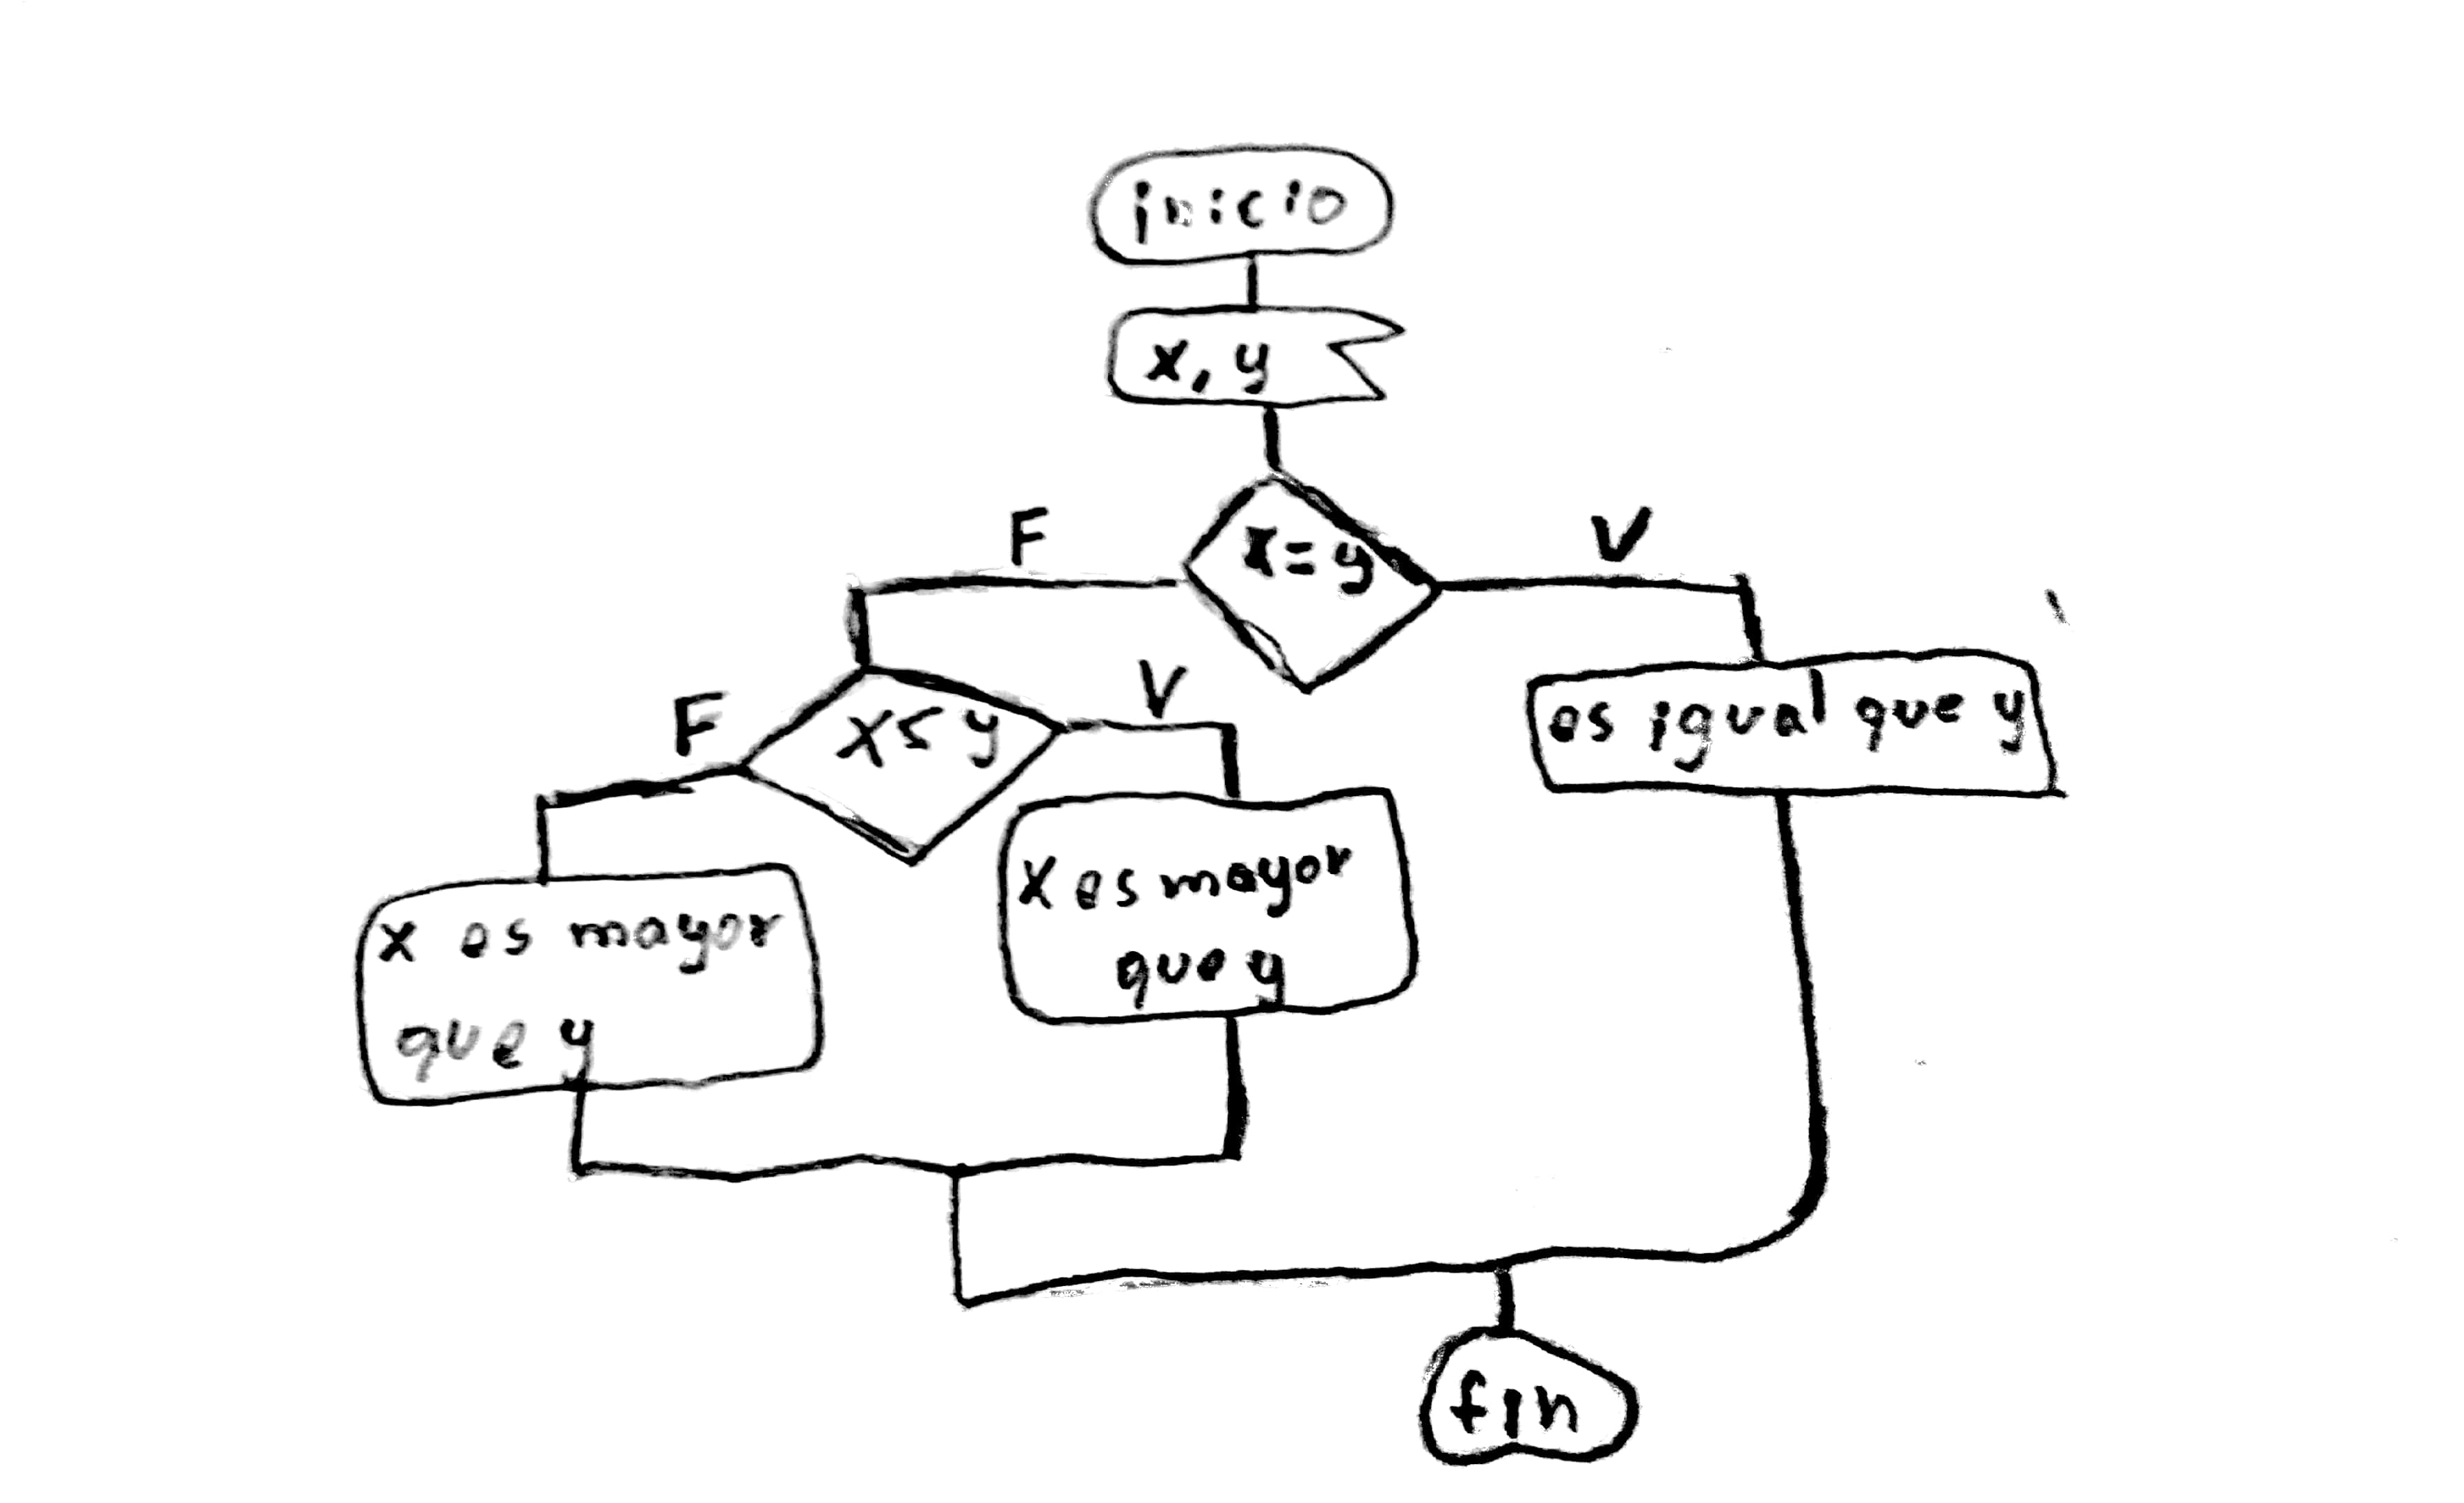 inicio
x, y
F
x=y
V
F
x≤y
V
es igual que y
x es mayor
que y
x es mayor
que y
fin